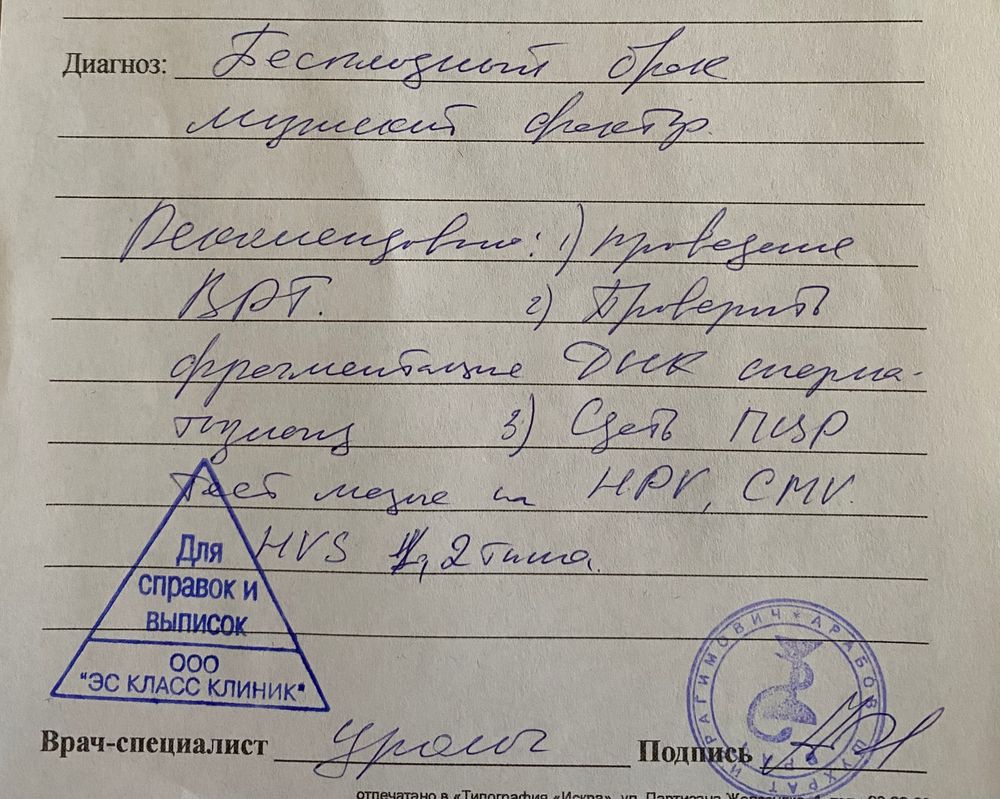 Диагноз: Бесплодный брак
мужской фактор.
Рекомендовано: 1) проведение
ВРТ. 2) Проверить
фрагментацию ДНК сперма-
тозоид 3) Сдать ПЦР
Тест мазие на HPV, CMV.
HVS 1, 2 типа.
Для
справок и
выписок
ООО
"ЭС КЛАСС КЛИНИК"
ИБРАГИМОВИЧ * АРАБОВ ЗУХРАТ
ВРАЧ
Врач-специалист уролог Подпись
отпечатано в «Типография «Искра», ул. Партизана Железняка